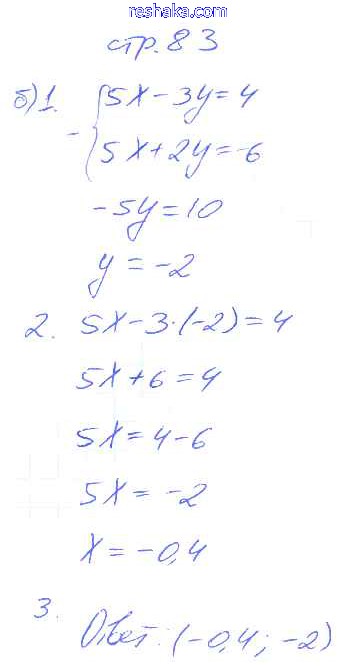 reshaka.com
стр. 83
б) 1. { 5x - 3y = 4
- { 5x + 2y = -6
-5y = 10
y = -2
2. 5x - 3·(-2) = 4
5x + 6 = 4
5x = 4 - 6
5x = -2
x = -0,4
3.
Ответ: (-0,4; -2)